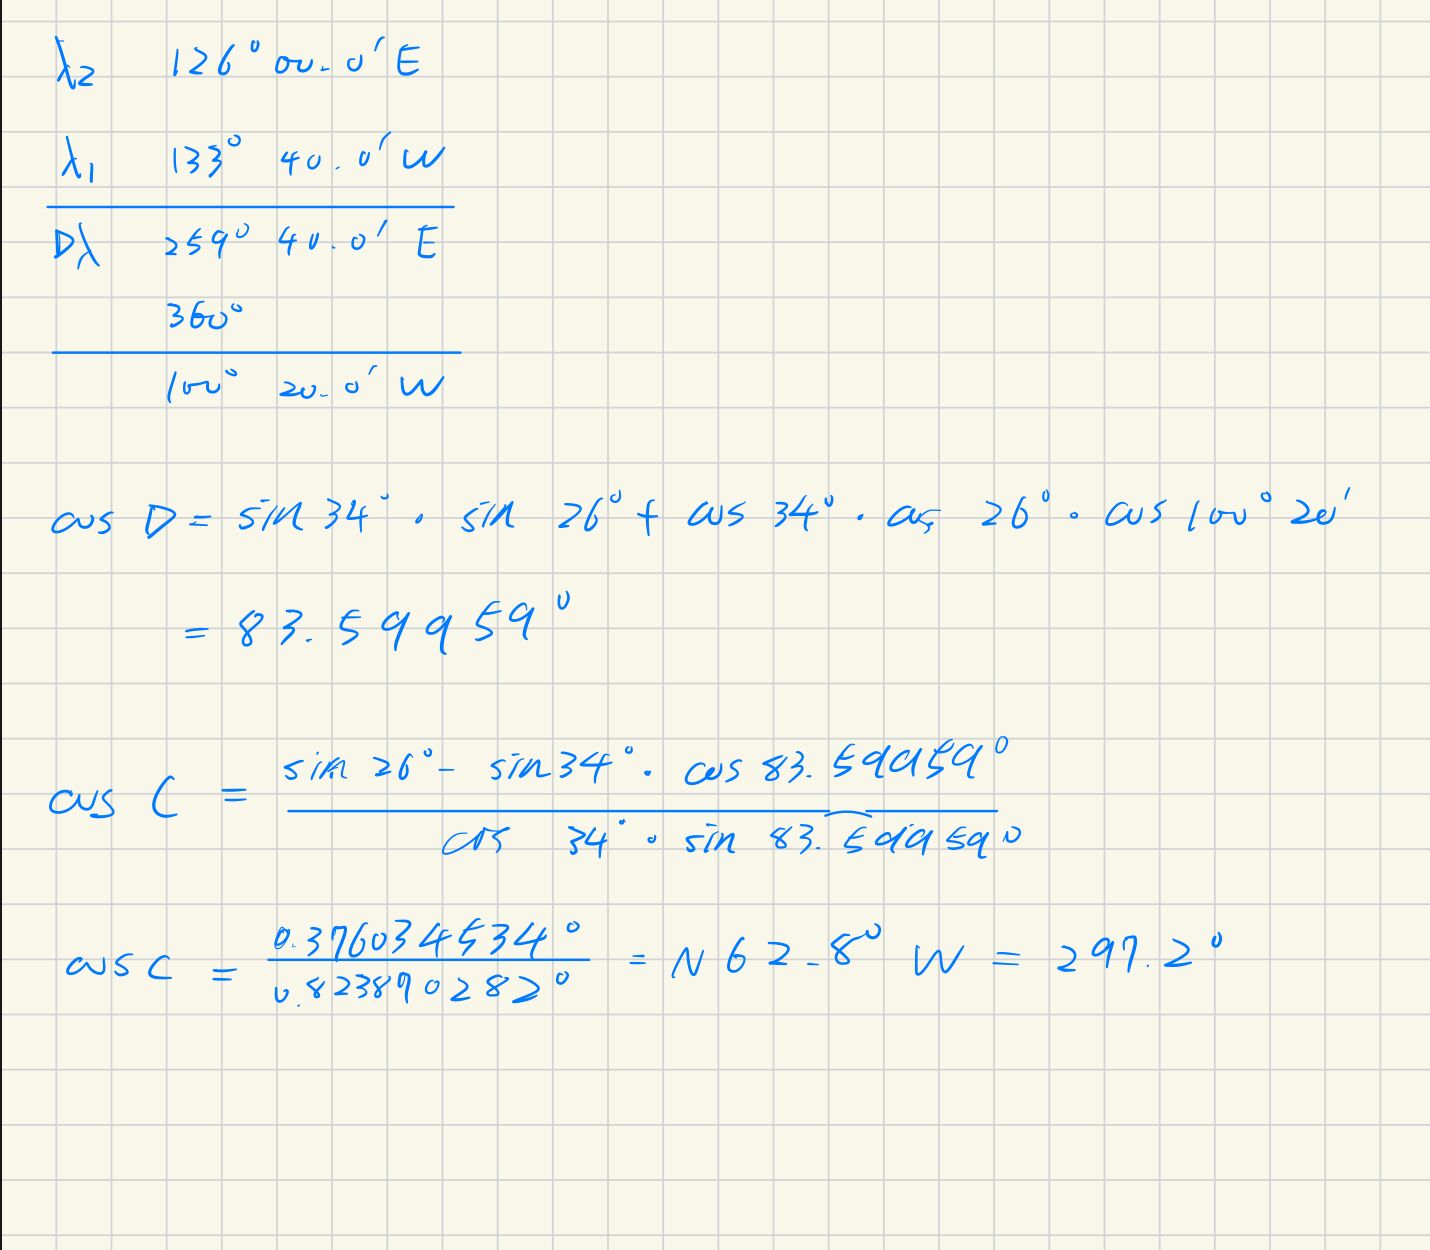 λ2 126° 00.0' E
λ1 133° 40.0' W
Dλ 259° 40.0' E
360°
100° 20.0' W
cos D = sin 34° · sin 26° + cos 34° · cos 26° · cos 100° 20'
= 83.59959°
cos C = sin 26° - sin 34° · cos 83.59959°
cos 34° · sin 83.59959°
cos C = 0.376034534° = N 62.8° W = 297.2°
0.823890282°